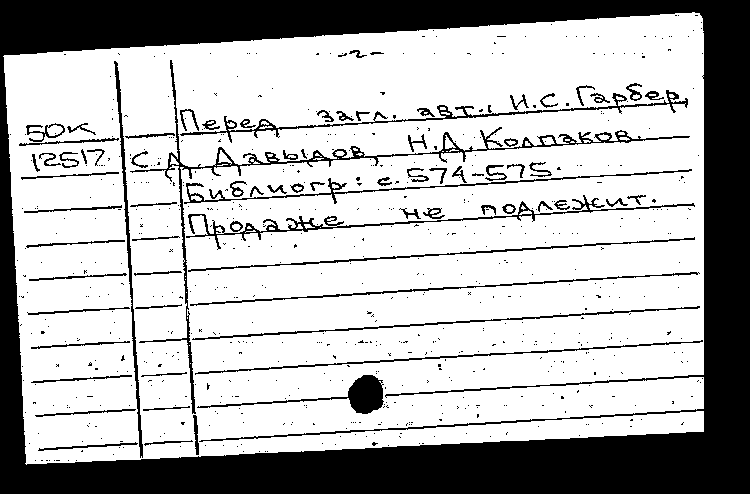 -2-
50к Перед загл. авт.: И.С. Гарбер,
12517 С.Д. Давыдов, Н.Д. Колпаков.
Библиогр: с. 574-575.
Продаже не подлежит.